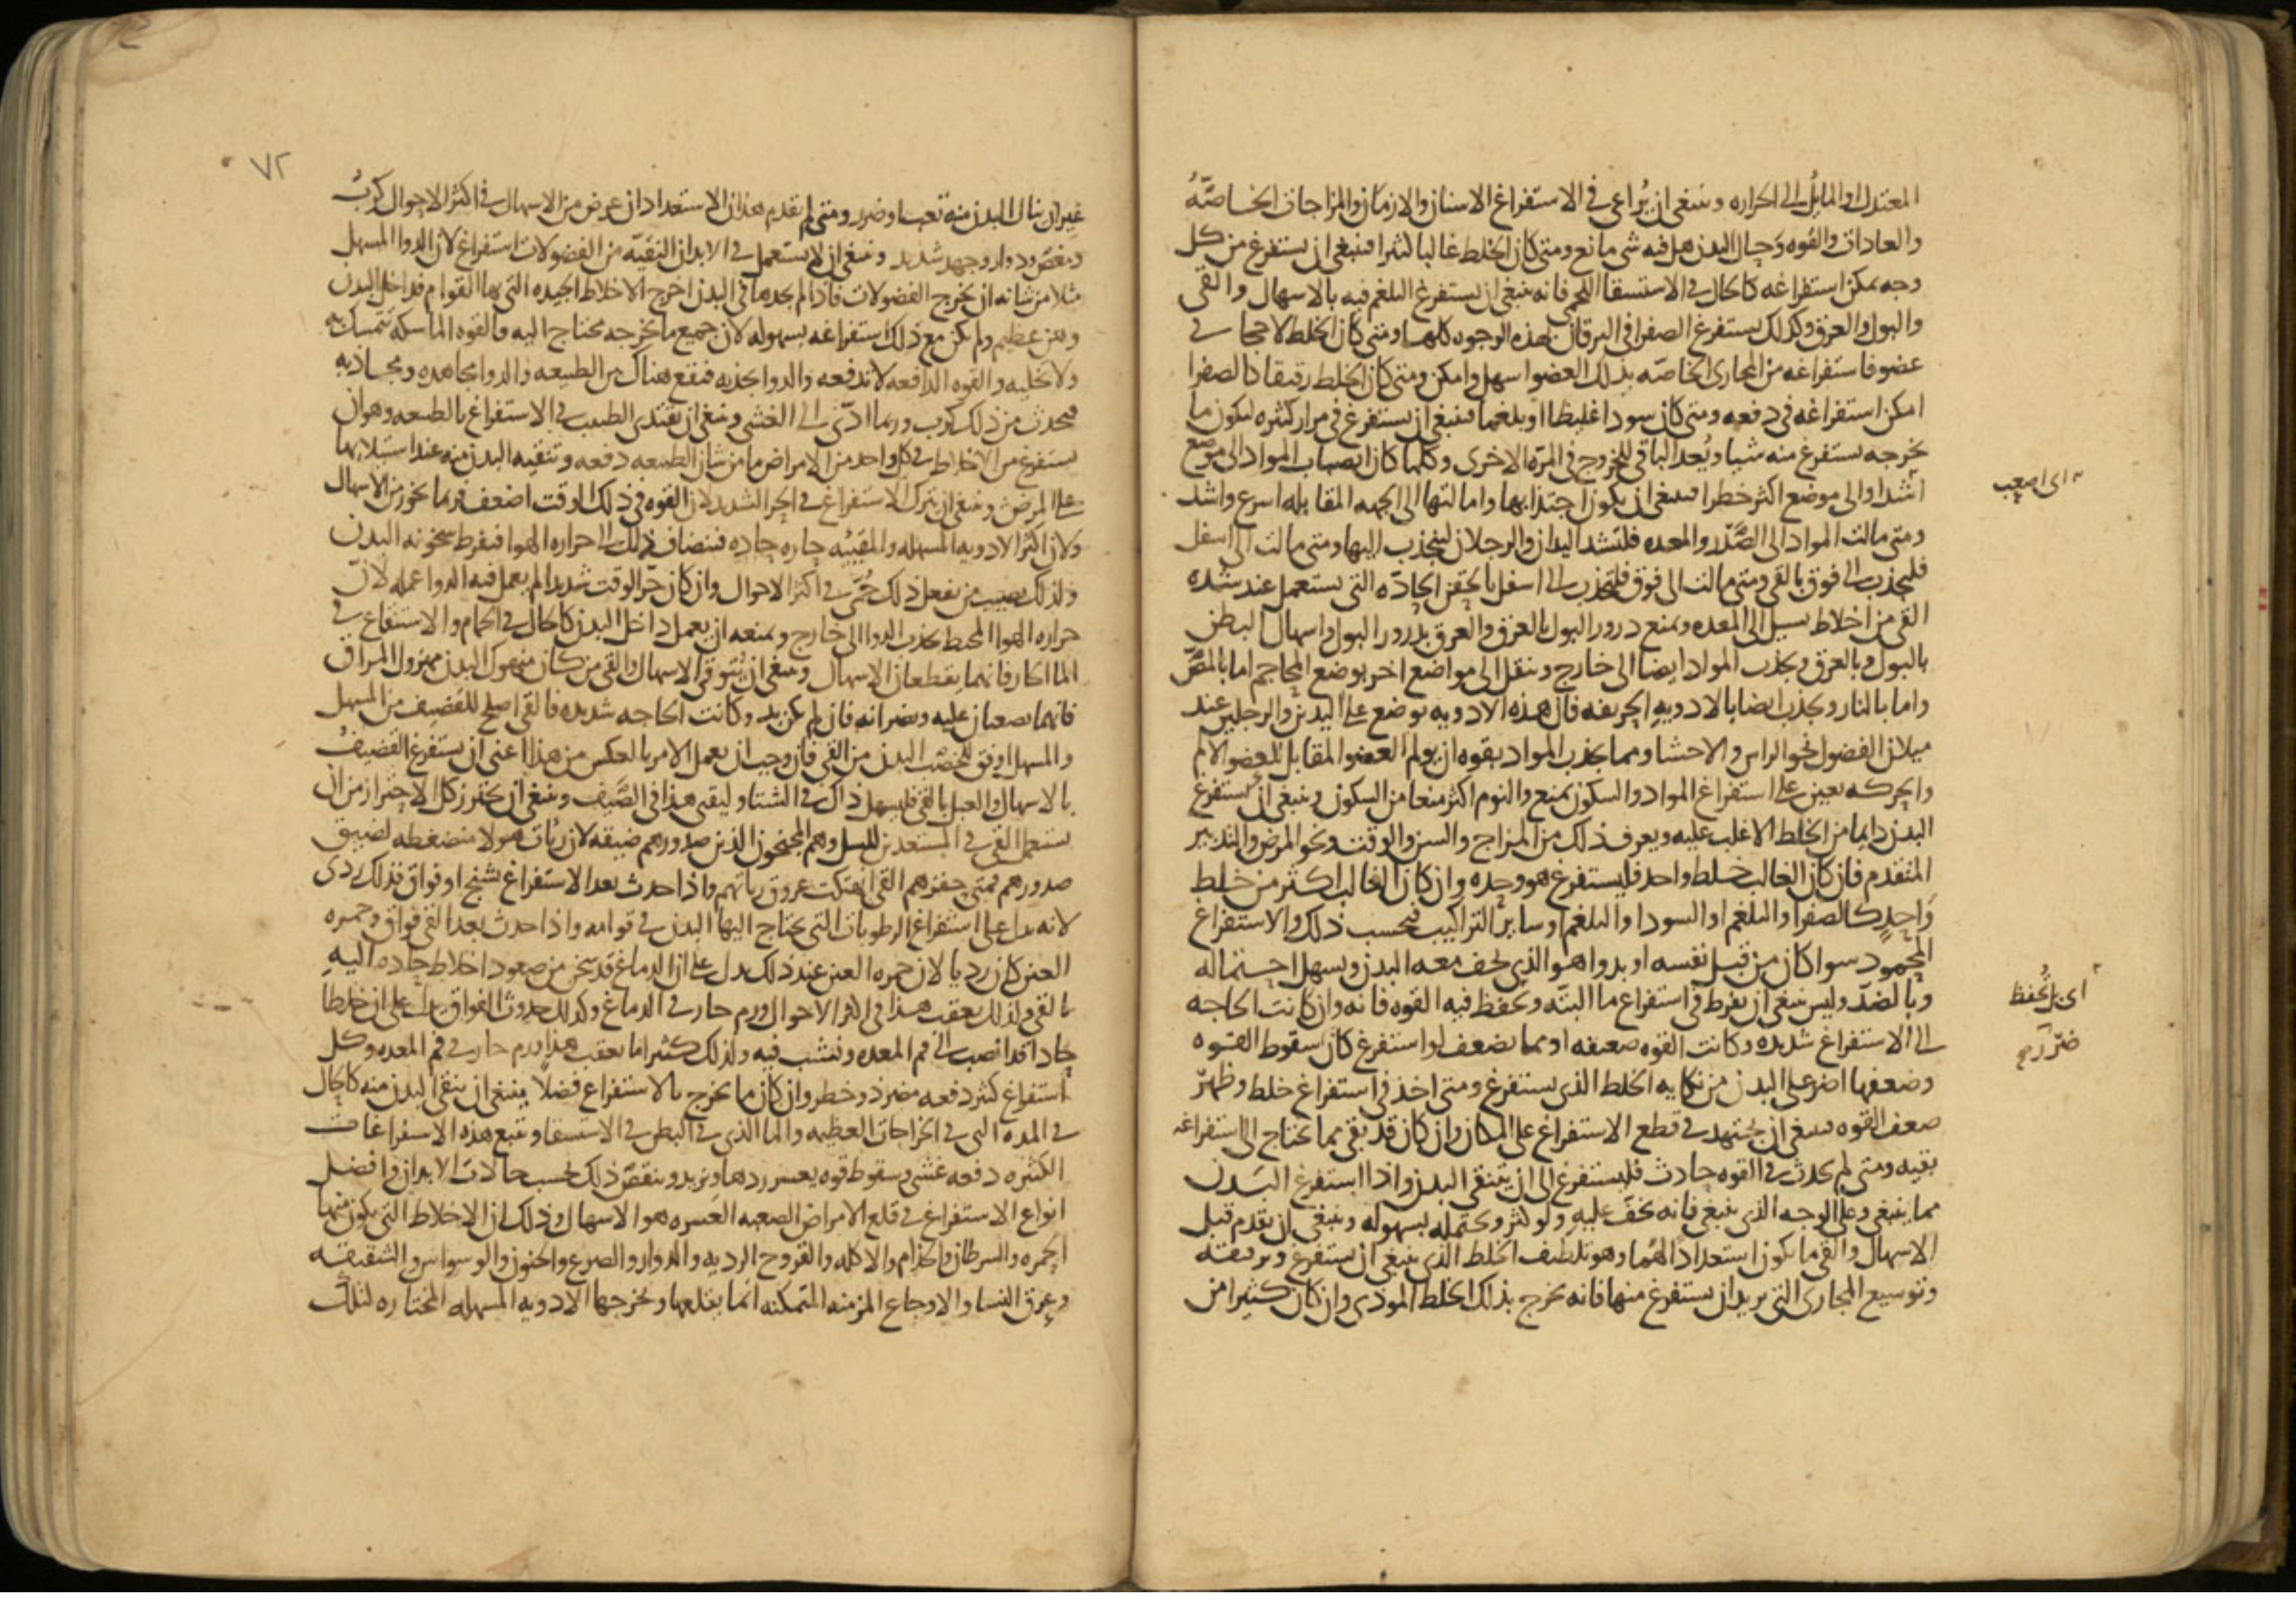 المعتدل او المائل الى الحراره وينبغي ان يُراعى في الاستفراغ الاسنان والازمان والمزاجات الخاصّه
والعادات والقوه وحال البدن هل فيه شي مانع ومتى كان الخلط غالبا كثيرا فينبغي ان يستفرغ من كل
وجه يمكن استفراغه كالحال في الاستسقا اللحمي فانه ينبغي ان يستفرغ البلغم فيه بالاسهال والقي
والبول والعرق وكذلك يستفرغ الصفرا في اليرقان بهذه الوجوه كلها ومتى كان الخلط لاحجا في
عضو فاستفراغه من المجاري الخاصّه بذلك العضو اسهل وامكن ومتى كان الخلط رقيقا كالصفرا
امكن استفراغه في دفعه ومتى كان سودا غليظا او بلغما فينبغي ان يستفرغ في مرار كثيره ليكون ما
يخرجه يستفرغ منه شيا ويُعد الباقي للخروج في المرّه الاخرى وكلما كان انصباب المواد الى موضع
اشد او الى موضع اكثر خطرا فينبغي ان يكون اجتذابها وامالتها الى الجهه المقابله اسرع واشد
اى اصعب
ومتى مالت المواد الى الصَّدر والمعده فلتشد اليدان والرجلان لينجذب اليها ومتى مالت الى اسفل
فليجذب الى فوق بالقي ومتى مالت الى فوق فلتجذب الى اسفل بالحقن الحادّه التي يستعمل عند شده
القي من اخلاط تسيل الى المعده ويمنع درور البول بالعرق والعرق بدرور البول واسهال البطن
بالبول وبالعرق ويجذب المواد ايضا الى خارج وينقل الى مواضع اخر بوضع المحاجم اما بالمصّ
واما بالنار ويجذب ايضا بالادويه الحريفه فان هذه الادويه توضع على اليدين والرجلين عند
ميلان الفضول نحو الراس والاحشا ومما يجذب المواد بقوه ان يولم العضو المقابل للعضو الالم
والحركه تعين على استفراغ المواد والسكون يمنع والنوم اكثر منعا من السكون وينبغي ان يستفرغ
البدن دايما من الخلط الاغلب عليه ويعرف ذلك من المزاج والسن والوقت ونحو المرض والتدبير
المتقدم فان كان الغالب خلط واحد فليستفرغ هو وحده وان كان الغالب اكثر من خلط
واحدٍ كالصفرا والبلغم او السودا والبلغم او ساير التراكيب فبحسب ذلك والاستفراغ
المحمود سوا كان من قبل نفسه او بدوا هو الذي يخف معه البدن ويسهل احتماله
وبالضد وليس ينبغي ان يفرط في استفراغ ما البتّه وتحفظ فيه القوه فانه وان كانت الحاجه
اى بل يُحفظ
الى الاستفراغ شديده وكانت القوه ضعيفه او مما يضعف لو استفرغ كان سقوط القوه
وضعفها اضر على البدن من نكايه الخلط الذي يستفرغ ومتى اخذ في استفراغ خلط وظهر
ضعف القوه فينبغي ان يجتهد في قطع الاستفراغ على المكان وان كان قد بقي مما يحتاج الى استفراغه
بقيه ومتى لم يحدث في القوه حادث فليستفرغ الى ان يتنقى البدن واذا استفرغ البَدن
مما ينبغي وعلى الوجه الذي ينبغي فانه يخفّ عليه ولو كثر ويحتمله بسهوله وينبغي ان يقدم قبل
الاسهال والقي ما يكون استعدادا لهُما وهو تلطيف الخلط الذي ينبغي ان يستفرغ وترقيقه
وتوسيع المجارى التي يريد ان يستفرغ منها فانه يخرج بذلك الخلط الموذي وان كان كثيرا من
٧٢
غير ان ينال البدن منه تعب او ضرر ومتى لم يقدم هذان الاستعدادان عرض من الاسهال في اكثر الاحوال كربُ
ومغصٌ ودوار وجهد شديد وينبغي ان لا يستعمل في الابدان النقيّه من الفضولات استفراغ لان الدوا المسهل
مثلا من شانه ان يخرج الفضولات فاذا لم يجدها في البدن اخرج الاخلاط الجيده التي بها القوام فداخل البدن
وهن عظيم ولم يكن مع ذلك استفراغه بسهوله لان جميع ما يخرجه محتاج اليه والقوه الماسكه تتمسك به
ولا تخليه والقوه الدافعه لا تدفعه والدوا يجذبه فيقع هناك بين الطبيعه والدوا مجاهده ومجاذبه
فيحدث من ذلك كرب وربما ادّى الى الغشي وينبغي ان يقتدى الطبيب في الاستفراغ بالطبيعه وهو ان
يستفرغ من الاخلاط في كل واحد من الامراض ما من شان الطبيعه دفعه وتنقيه البدن منه عند استيلايها
على المرض وينبغي ان يترك الاستفراغ في الحر الشديد لان القوه في ذلك الوقت اضعف فربما تخور من الاسهال
ولان اكثر الادويه المسهله والمقييه حاره حادّه فينضاف ذلك الى حراره الهوا فيفرط سخونه البدن
ولذلك يصيب من يفعل ذلك حُمّى في اكثر الاحوال وان كان حرّ الوقت شديدا لم يعمل فيه الدوا عمله لان
حراره الهوا المحيط يجذب الدوا الى خارج ويمنعه ان يعمل داخل البدن كالحال في الحمام والاستنقاع في
الما الحار فانهما يقطعان الاسهال وينبغي ان يُتوقى الاسهال والقي من كان منهوك البدن مهزول المراق
فانهما يصعبان عليه ويضرانه فان لم يكن بد وكانت الحاجه شديده فالقي اصلح للقضيف من المسهل
والمسهل اوفق للخصب البدن من القي فان وجب ان يعمل الامر بالعكس من هذا اعنى ان يستفرغ القضيفُ
بالاسهال والعبل بالقي فليسهل ذاك في الشتا وليقي هذا في الصَّيف وينبغي ان يحترز كل الاحتراز من ان
يستعمل القي في المستعدين للسل وهم المجنحون الذين صدورهم ضيقه لان ريات هولا منضغطه لضيق
صدورهم فمتى حفزهم القي انهتكت عروق رياتهم واذا حدث بعد الاستفراغ تشنج او فواق فذلك ردى
لانه يدل على استفراغ الرطوبات التي يحتاج اليها البدن في قوامه واذا حدث بعد القي فواق وحمره
العين كان رديا لان حمره العين عند ذلك يدل على ان الدماغ قد سخن من صعود اخلاط حاده اليهِ
بالقي ولذلك يعقب هذا في اكثر الاحوال ورم حار في الدماغ وكذلك حدوث الفواق يدل على ان خلطا
حادا قد انصب الى فم المعده ونشب فيه ولذلك كثيرا ما يعقب هذا ورم حار في فم المعده وكل
استفراغ كثير دفعه مضر ذو خطر وان كان ما يخرج بالاستفراغ فضلا ينبغي ان ينقى البدن منه كالحال
في المده التي في الخراجات العظيمه والما الذي في البطن في الاستسقا ويتبع هذه الاستفراغات
الكثيره دفعه غشي وسقوط قوه يعسر ردها ويزيد وينقص ذلك بحسب حالات الابدان وافضل
انواع الاستفراغ في قلع الامراض الصعبه العَسره هو الاسهال وذلك ان الاخلاط التي يكون منها
الحمره والسرطان والجذام والاكله والقروح الرديه والدوار والصرع والجنون والوسواس والشقيقه
وعرق النسا والاوجاع المزمنه المتمكنه انما يقلعها ويخرجها الادويه المسهله المختاره لتلك